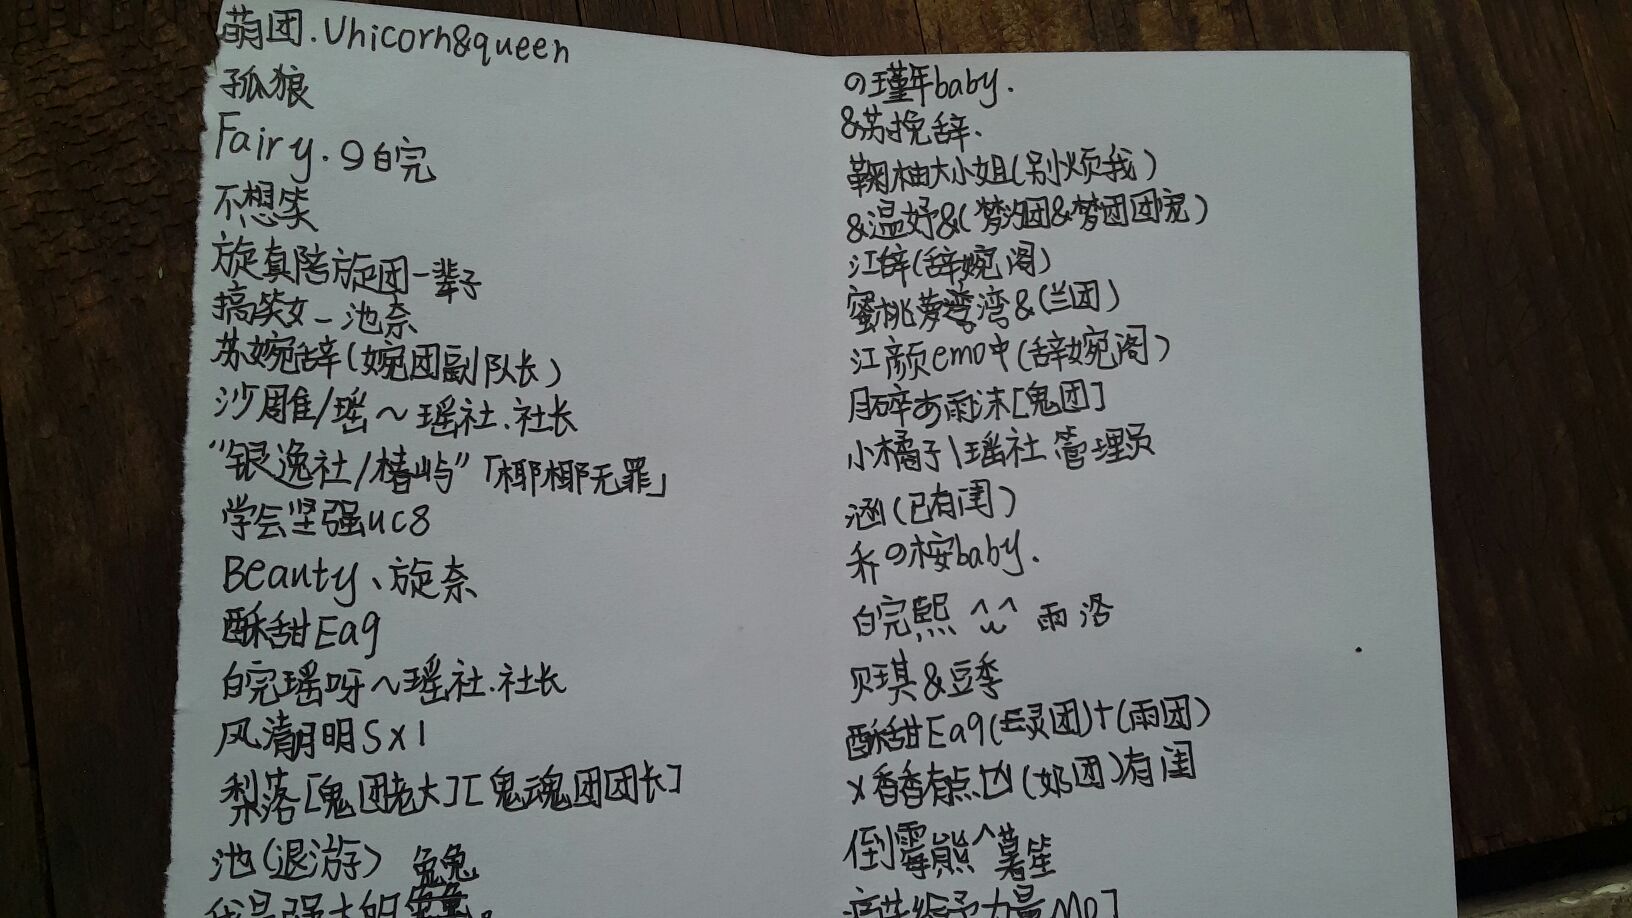 萌团.Unicorn&queen
孤狼
Fairy.9白完
不想笑
旋真陪旋团一辈子
搞笑女_池奈
苏婉辞(婉团副队长)
沙雕/瑶～瑶社.社长
"银逸社/椿屿"「椰椰无罪」
学会坚强uc8
Beauty、旋奈
酥甜Ea9
白完瑶呀～瑶社.社长
风清月明Sx1
梨落[鬼团老大][鬼魂团团长]
池(退游) 兔兔
我是强大的兔兔。
の瑾年baby.
&苏挽辞.
鞠柚大小姐(别烦我)
&温妤&(梦汐团&梦团团宠)
江辞(辞婉阁)
蜜桃萝湾湾&(兰团)
江颜emo中(辞婉阁)
月碎あ雨沫[鬼团]
小橘子\瑶社 管理员
涵(已有闺)
乔の桉baby.
白完熙 ^^ 雨洛
贝琪&豆季
酥甜Ea9(灵团)+(雨团)
x香香有点凶(奶团)有闺
倒霉熊^薯笙
给予力量Mo]